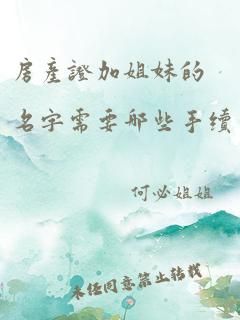 房產證加姐妹的
名字需要哪些手續
何必姐姐
未经同意禁止转载